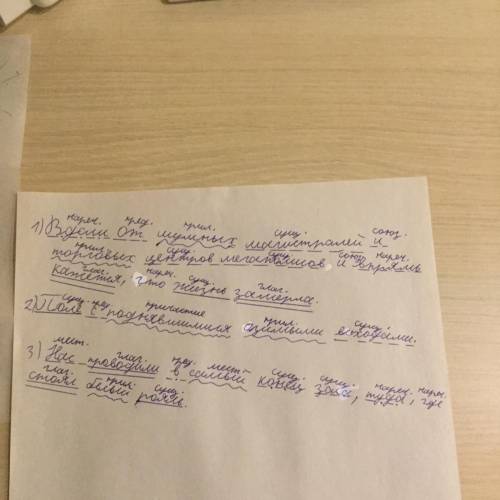 нареч. пред. прил. сущ. союз.
1) Вдали от шумных магистралей и
прил. сущ. сущ. союз нареч.
торговых центров мегаполисов, и впрямь
глаг. нареч. сущ. глаг.
кажется, что жизнь замерла.
сущ. пред. причастие прил. сущ.
2) Поле с поднявшимися озимыми всходами.
мест. глаг. пред. мест. сущ. сущ. нареч. нареч.
3) Нас проводили в самый конец зала, туда, где
глаг. прил. сущ.
стоял белый рояль.